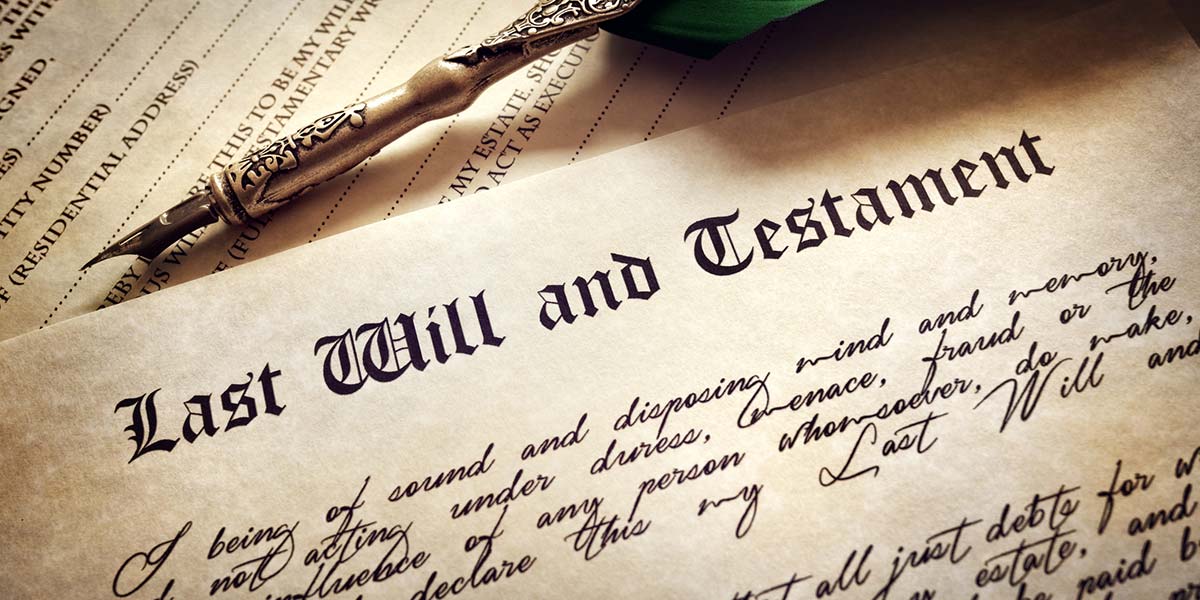 SIGNED.
TITY NUMBER)
(RESIDENTIAL ADDRESS)
THIS TO BE MY WILL
TESTAMENTARY
MY ESTATE,
ACT AS
Last Will and Testament
I being of sound and disposing mind and memory,
not acting under duress, menace, fraud or the
influence of any person whomsoever, do make,
declare this my Last Will and
all just debts for
estate, and
be paid